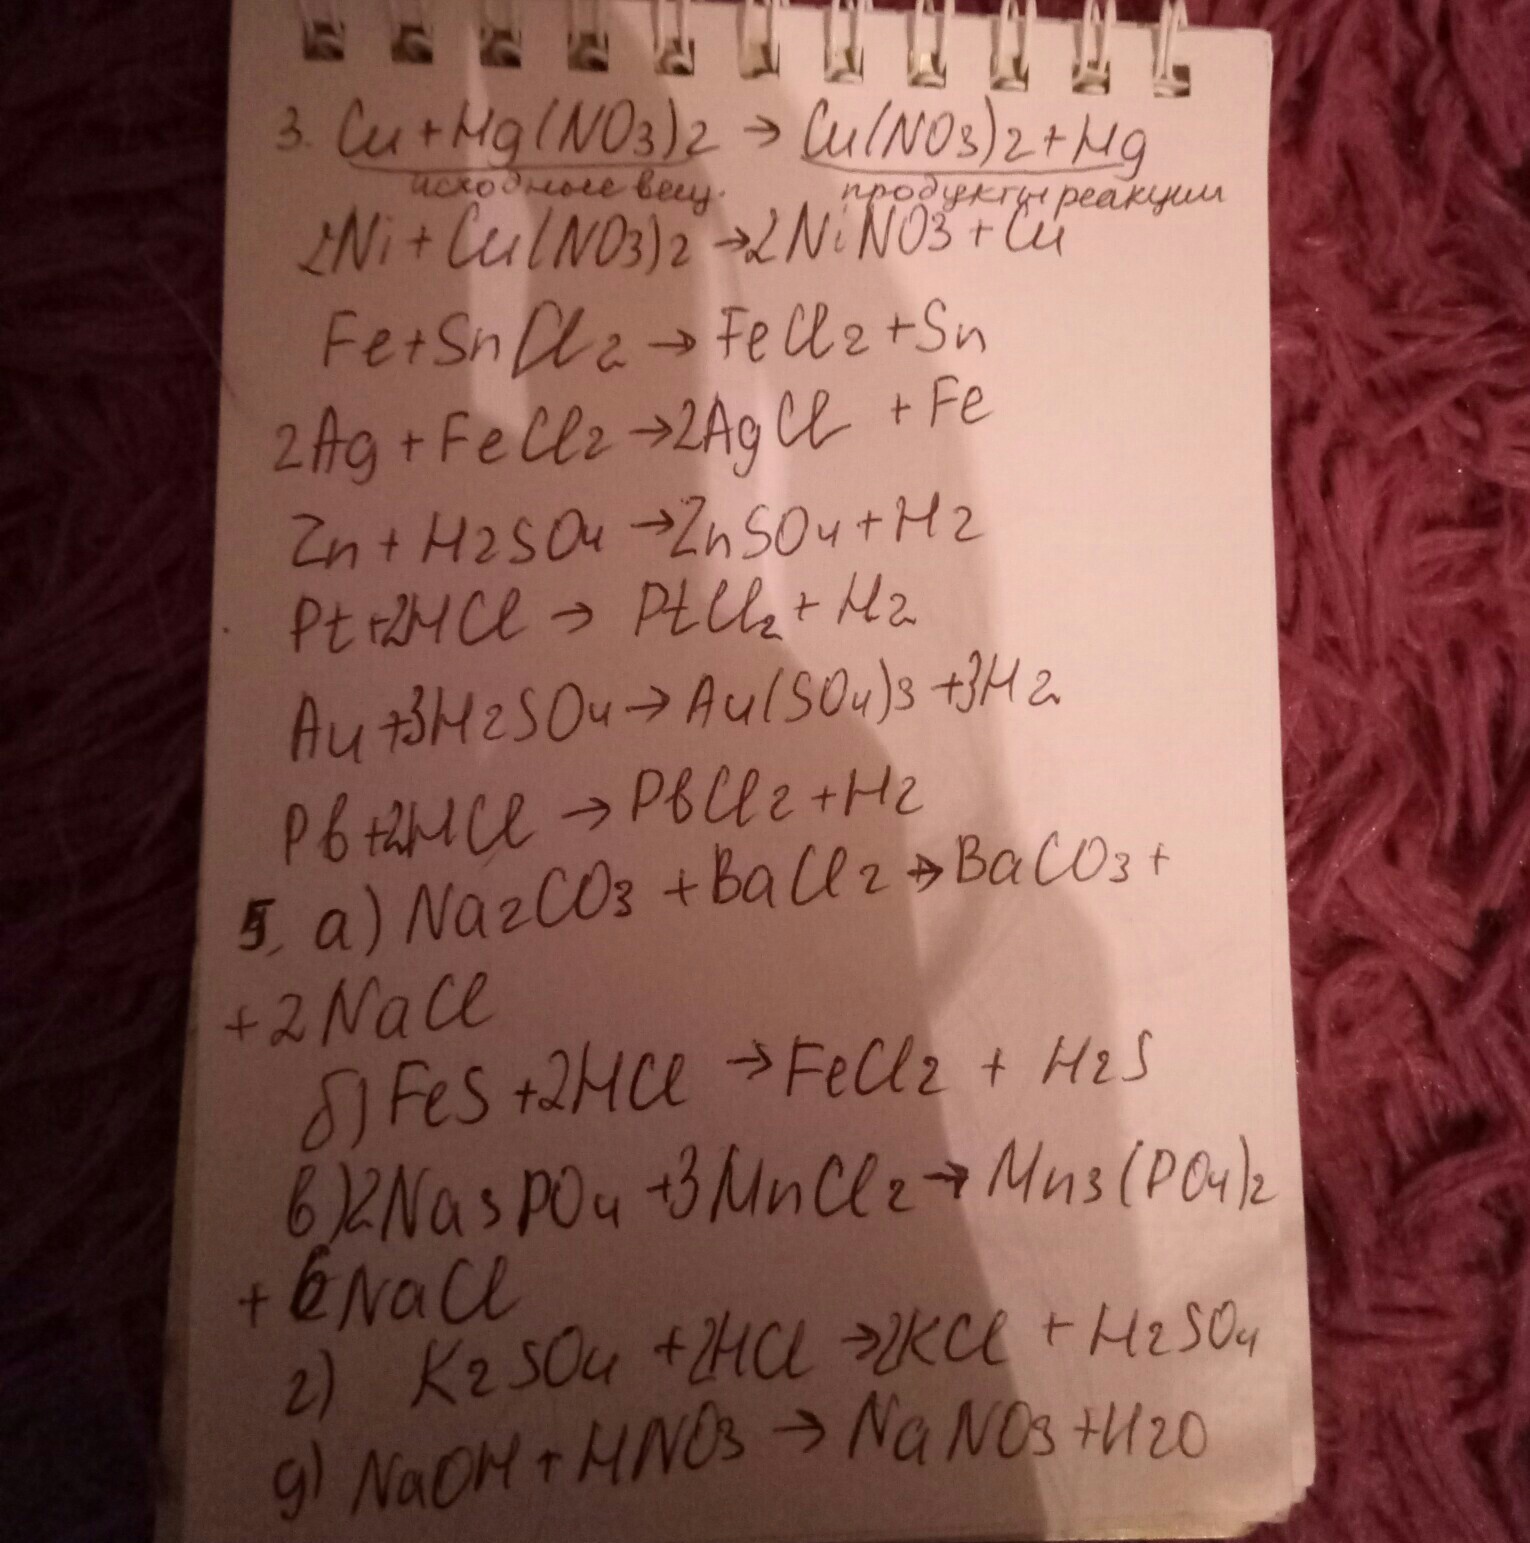 3. Cu+Mg(NO3)2 → Cu(NO3)2+Mg
исходные вещ. продукты реакции
2Ni+Cu(NO3)2→2NiNO3+Cu
Fe+SnCl2→FeCl2+Sn
2Ag+FeCl2→2AgCl+Fe
Zn+H2SO4→ZnSO4+H2
Pt+2HCl→PtCl2+H2
Au+3H2SO4→Au(SO4)3+3H2
Pb+2HCl→PbCl2+H2
5. а) Na2CO3+BaCl2→BaCO3+
+2NaCl
б) FeS+2HCl→FeCl2+H2S
в) 2Na3PO4+3MnCl2→Mn3(PO4)2
+6NaCl
г) K2SO4+2HCl→2KCl+H2SO4
д) NaOH+HNO3→NaNO3+H2O